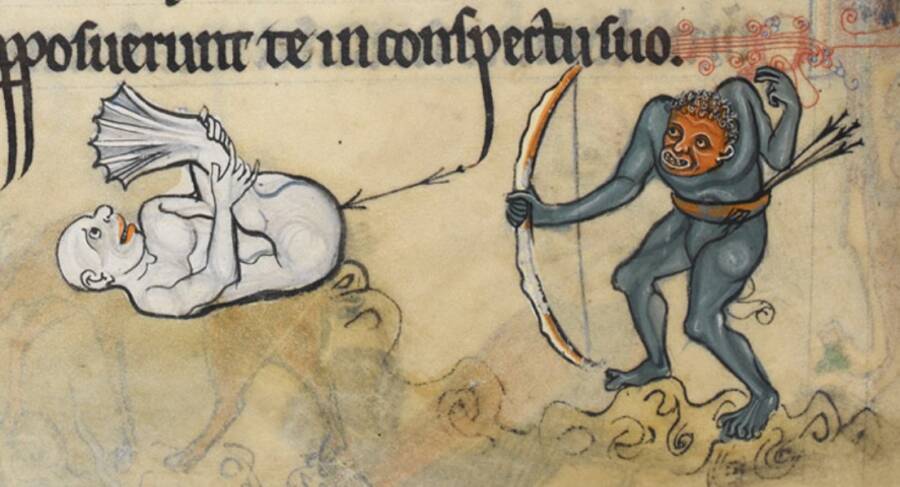 pposuerunt te in conspectu suo.